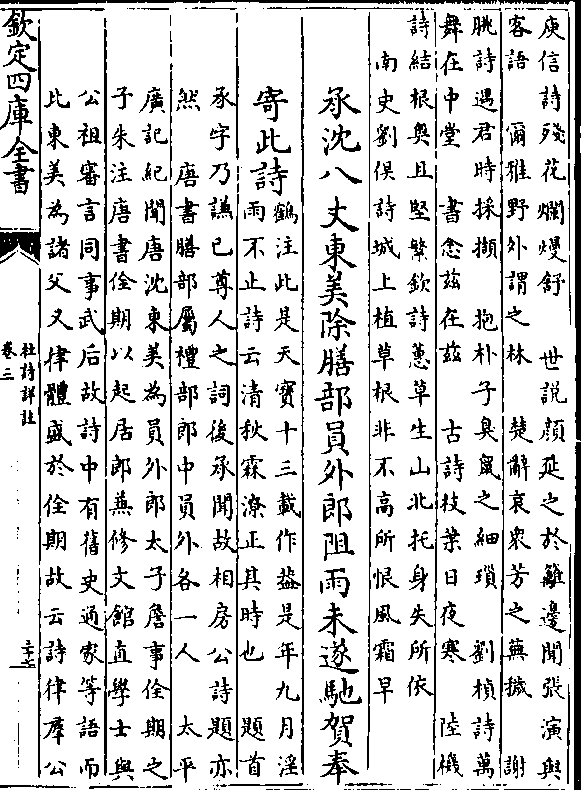 庾信詩殘花爛熳舒　世說顏延之於籬邊聞張演與
客語　爾雅野外謂之林　楚辭哀衆芳之蕪穢　謝
朓詩遇君時採擷　抱朴子臭鼠之細瑣　劉楨詩萬
舞在中堂　書念茲在茲　古詩枝葉日夜寒　陸機
詩結根奥且堅繁欽詩蕙草生山北托身失所依
南史劉俣詩城上植草根非不高所恨風霜早
承沈八丈東美除膳部員外郎阻雨未遂馳賀奉
寄此詩鶴注此是天寶十三載作葢是年九月淫
雨不止詩云清秋霖潦正其時也　題首
承字乃謙已尊人之詞後承聞故相房公詩題亦
然　唐書膳部屬禮部郎中員外各一人　太平
廣記紀聞唐沈東美為員外郎太子詹事佺期之
子朱注唐書佺期以起居郎兼修文館直學士與
公祖審言同事武后故詩中有舊史通家等語而
比東美為諸父又律體盛於佺期故云詩律羣公
欽定四庫全書
杜詩詳註
卷三